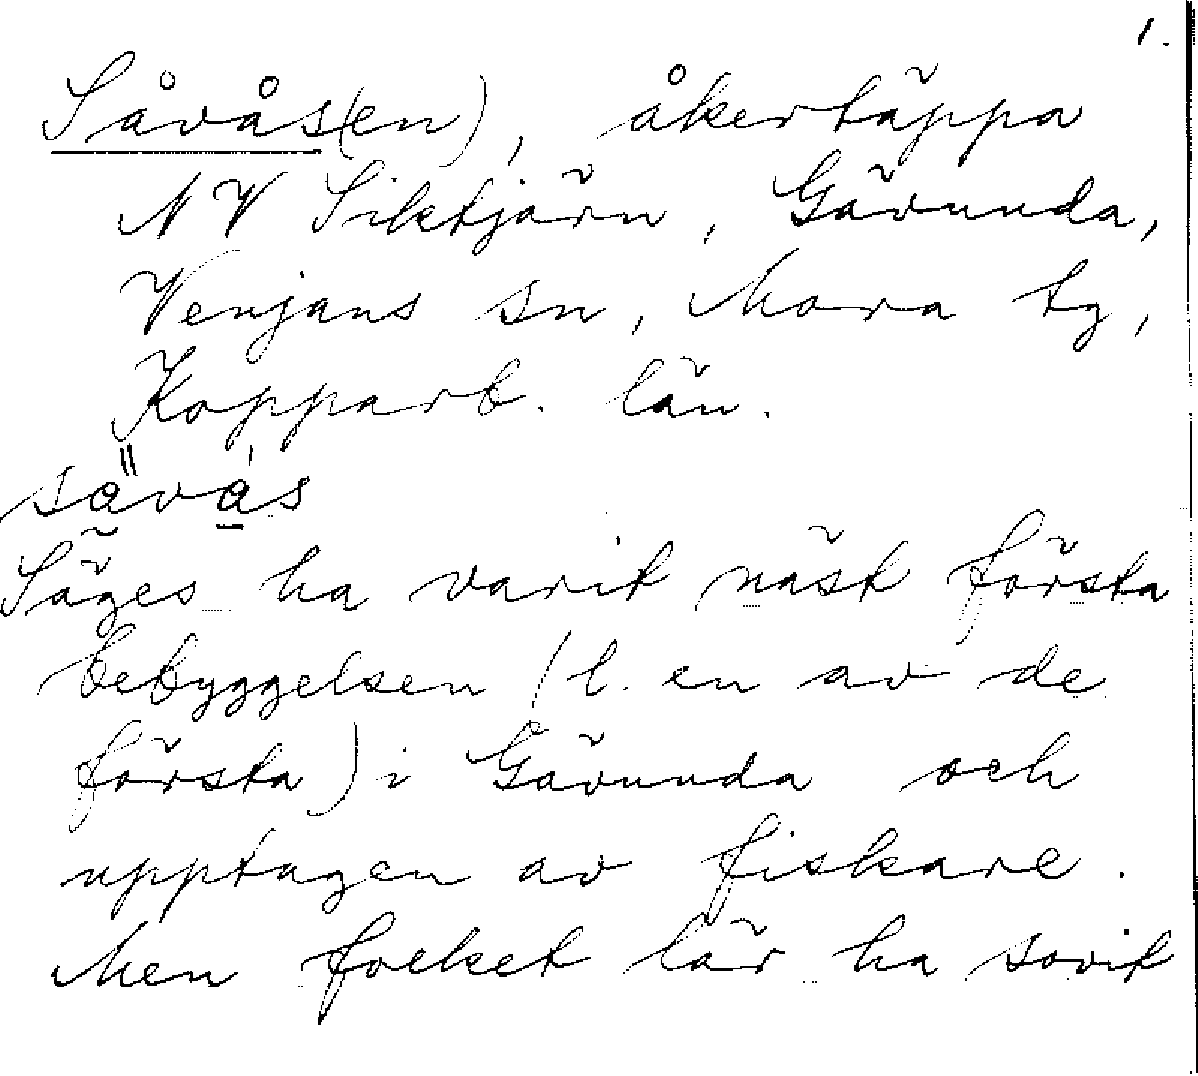 1.
Såvås(en), åkertäppa
NV Siktjärn, Gävunda,
Venjans sn, Mora tg,
Kopparb. län.
sävås
Säges ha varit näst första
bebyggelsen (l. en av de
första) i Gävunda och
upptagen av fiskare.
Men folket lär ha sovit